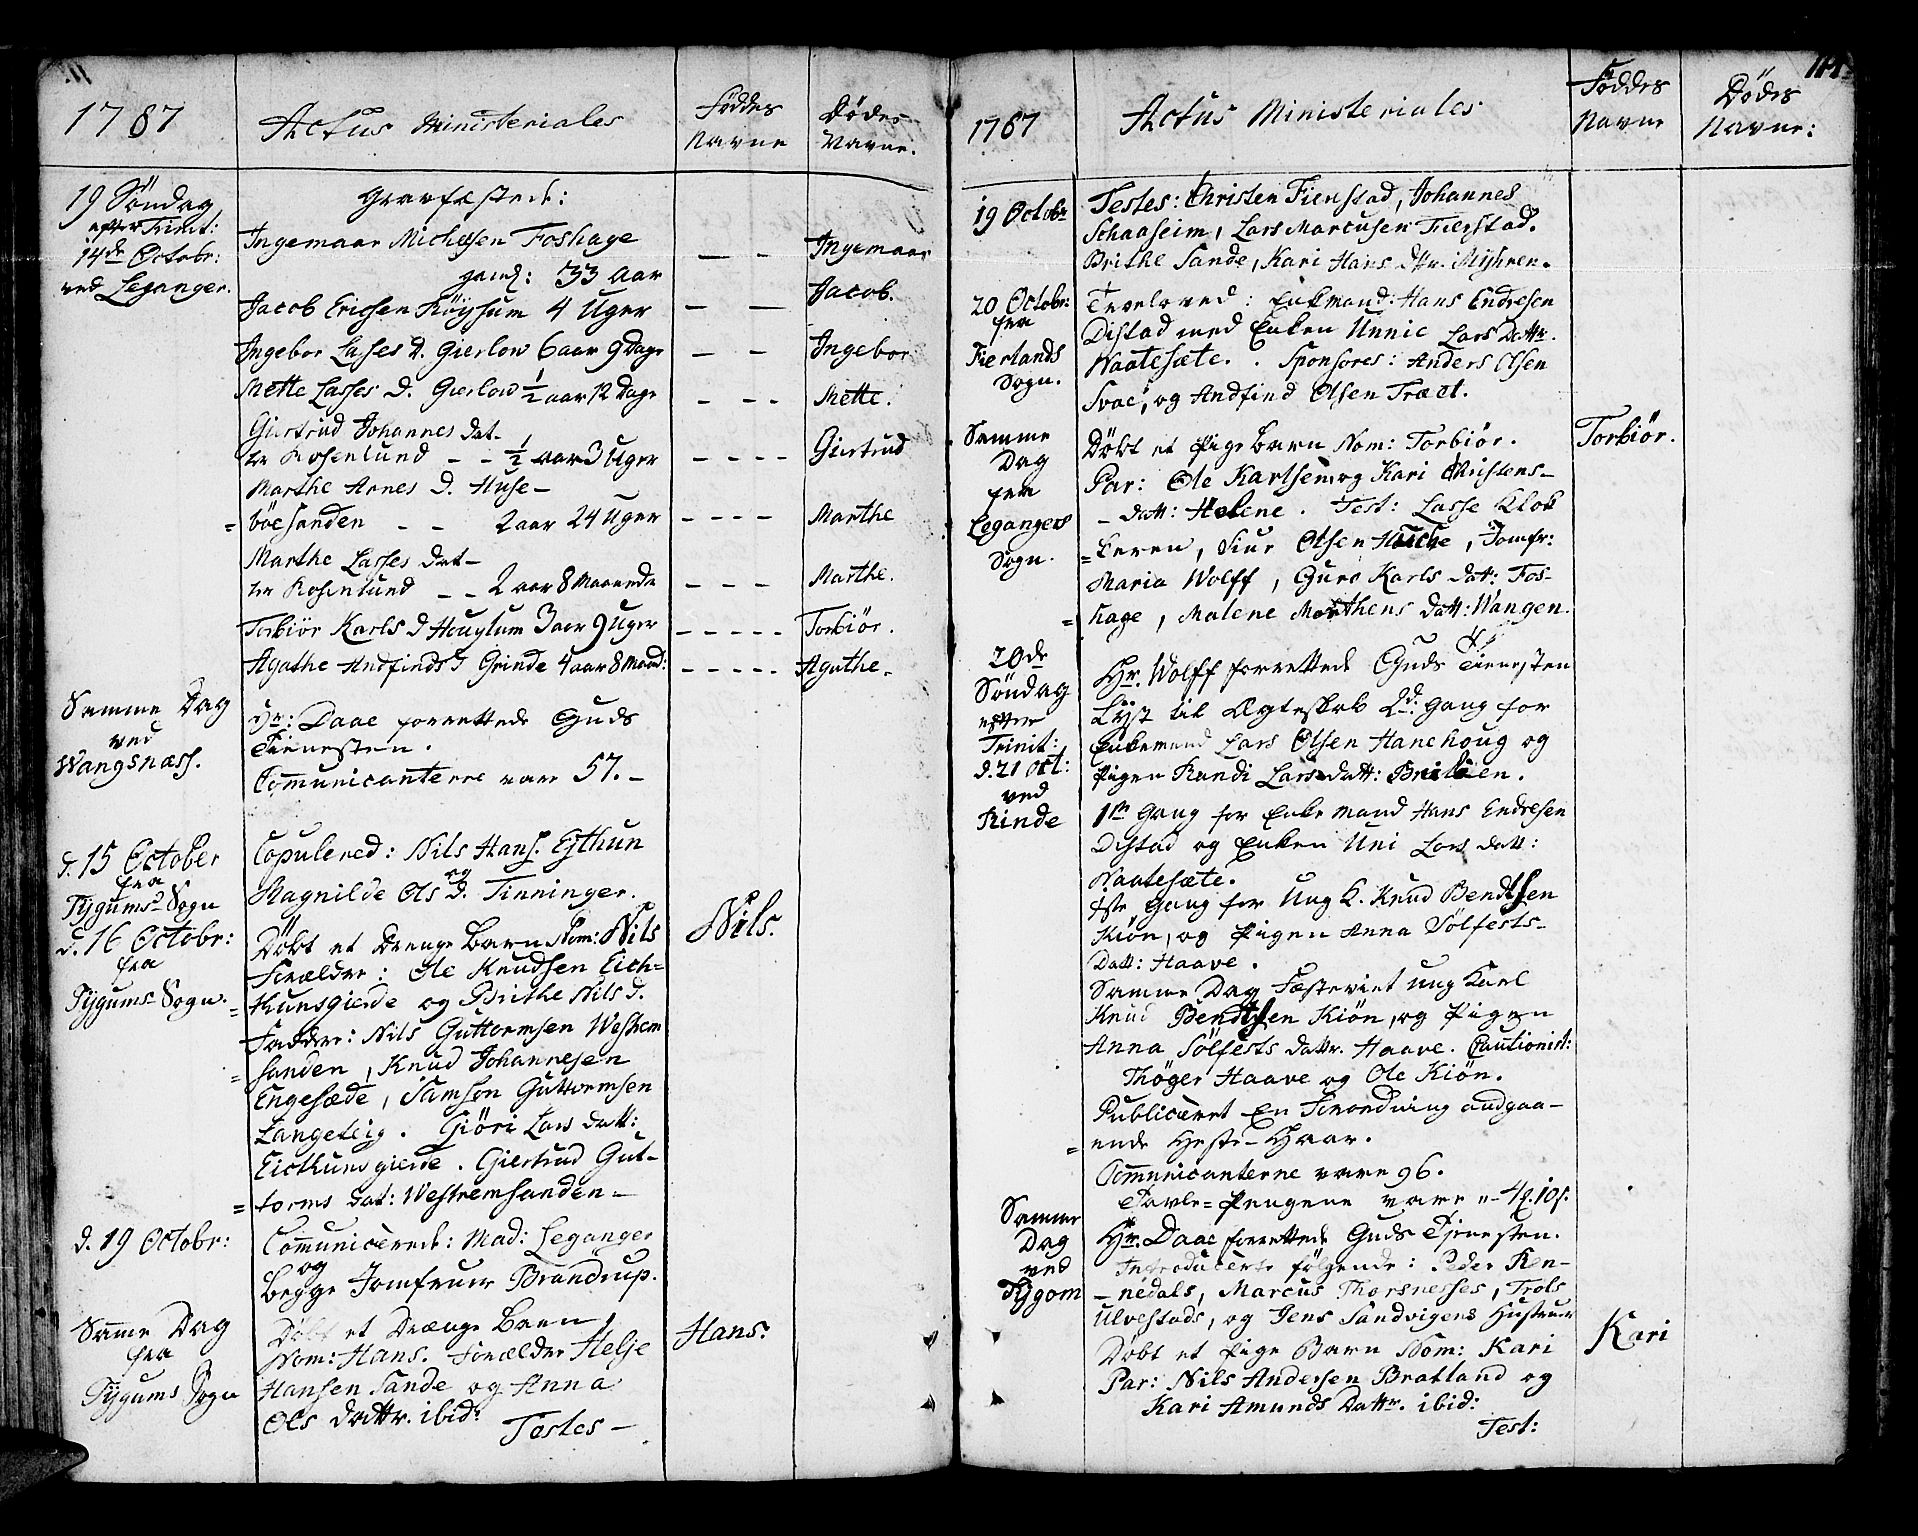 1787
Actus Ministeriales
Föddes
Navne
Dödes
Navne.
19 Söndag
efter Trinit:
14de Octobr:
ved Leganger.
Gravfæstede:
Ingemaar Michelsen Foshage
gaml: 33 Aar
Ingemaar
Jacob Ericsen Röysum 4 Uger
Jacob.
Ingebor Lasses D. Gierlow 6 aar 9 Dage
Ingebor
Mette Lasses D. Gierlow ½ aar 12 Dage
Mette.
Giertrud Johannes Dat-
ter Rosenlund - - ½ aar 3 Uger
Giertrud
Marthe Arnes D. Huse-
= böesanden - - 2 aar 24 Uger
Marthe
Marthe Lasses Dat-
ter Rosenlund - - 2 aar 8 Maaneder
Marthe.
Torbiör Karls D Houglum 3 aar 9 Uger
Torbiör.
Agathe Andfinds D Grinde 4 aar 8 Maand:
Agathe.
Samme Dag
ved
Wangsnæss.
Hr: Daae forrettede Guds
Tienesten.
Communicanterne vare 57.-
d. 15 October
fra
Tygums Sogn
Copulered: Nils Hans. Esthun
og
Ragnilde Ols D. Tinninger.
d. 16 Octobr:
fra
Tygums Sogn.
Döbt et Drenge Barn Nom: Nils
Nils.
Forældre: Ole Knudsen Eich-
= hunsgierde og Brithe Nils D.
Faddere: Nils Guttormsen Westrem
= sanden, Knud Johannesen
Engesæde, Samson Guttormsen
Langeteig. Giöri Lars Datt:
Eickhunsgierde. Giertrud Gut-
= torms Dat: Westremsanden-
d. 19 Octobr:
Communicerede: Mad: Leganger
og
begge Jomfruer Brandrup.
Samme Dag
fra
Tygums Sogn
Döbt et Drænge Barn
Nom: Hans. Forældre Helje
Hans.
Hansen Sande og Anna
Ols Dattr. ibid:
Testes-
1787
Actus Ministeriales
Föddes
Navne
Dödes
Navne:
19 Octobr
Testes: Christen Fienstad, Johannes
Schaaseim, Lars Marcusen Fienstad.
Brithe Sande, Kari Hans Dttr. Myhren.
20 Octobr:
fra
Fierlands
Sogn.
Troeloved: Enkmand: Hans Endresen
Distad med Enken Unnie Lars Dattr.
Naatesæte. Sponsores: Anders Olsen
Svae, og Andfind Olsen Træet.
Samme
Dag
fra
Legangers
Sogn.
Döbt et Pige Barn Nom: Torbiör.
Torbiör.
Par: Ole Karlsen, og Kari Christens-
- Datt: Helene. Test: Lasse Klok
= keren, Siur Olsen Hucke, Jomfr:
Maria Wolff, Guro Karls Dat: Fos-
= hage, Malene Morthens Datt: Wangen.
20de
Söndag
efter
Trinit:
d. 21 Oct:
ved
Rinde
Hr. Wolff forrettede Guds Tienesten
Lyst til Ægteskab 2d: Gang for
Enkemand Lars Olsen Hanehoug og
Pigen Randi Lars Datt:
1te Gang for Enkemand Hans Endresen
Distad og Enken Uni Lars Datt:
Naatesæte.
1ste Gang for Ung K. Knud Bendtsen
Kiön, og Pigen Anna Sölfests-
Datt: Haave.
Samme Dag Fæsteviet ung Karl
Knud Bendtsen Kiön, og Pigen
Anna Sölfests Dattr. Haave. Cautionist:
Thöger Haave og Ole Kiön.
Publiceret En Forordning andgaa-
= ende Heste-Haar.
Communicanterne vare 96.
Tavle-Pengene vare "-4ʒ. 10ʃ.
Samme
Dag
ved
Tygom
Hr. Daae forrettede Guds Tjenesten.
Introducerte fölgende: Peder Ren-
- nedals, Marcus Thorsnesses, Trols
Ulvestads, og Jens Sandvigens Hustruer
Döbt et Pige Barn Nom: Kari
Kari
Par: Nils Andersen Bratland og
Kari Amunds Dattr. ibid:
Test: